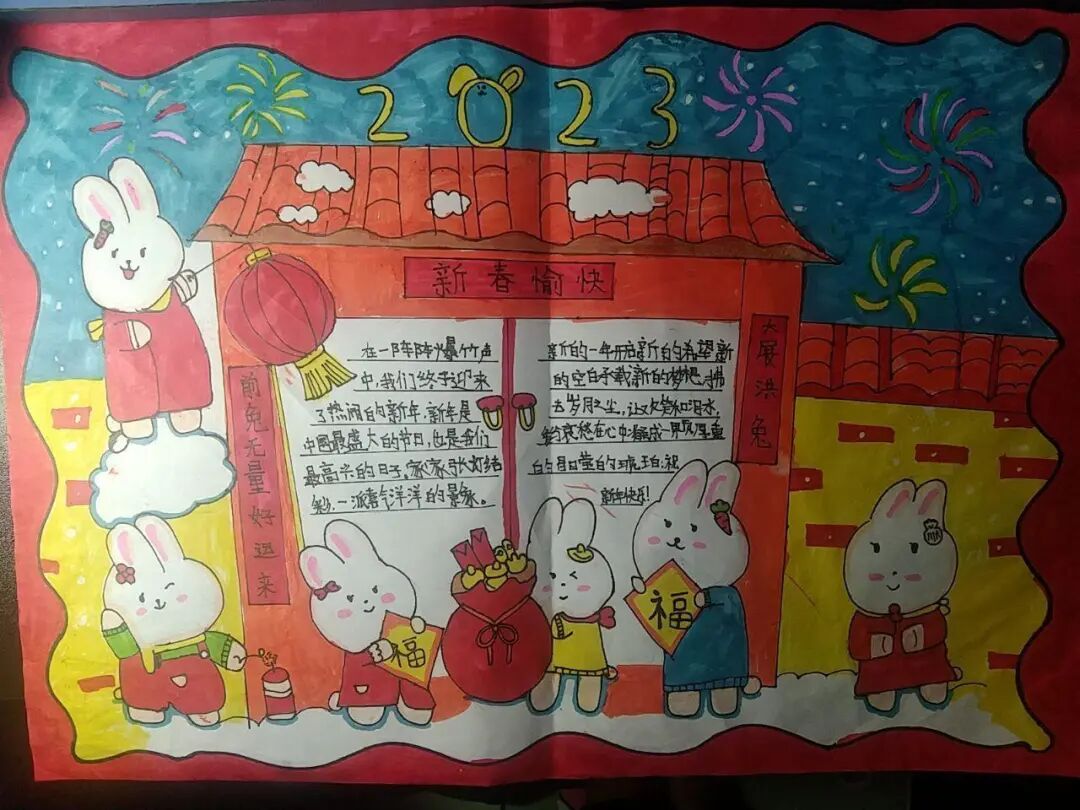 2023
新春愉快
前兔无量好运来
大展洪兔
在一阵阵爆竹声
中,我们终于迎来
了热闹的新年,新年是
中国最盛大的节日,也是我们
最高兴的日子,家家张灯结
彩,一派喜气洋洋的景象。
新的一年开启新的希望,新
的空白承载新的梦想,拂
去岁月之尘,让欢笑和泪水,
爱哀愁在心中凝成一
的晶莹的琥珀,祝
新年快乐!
福
福